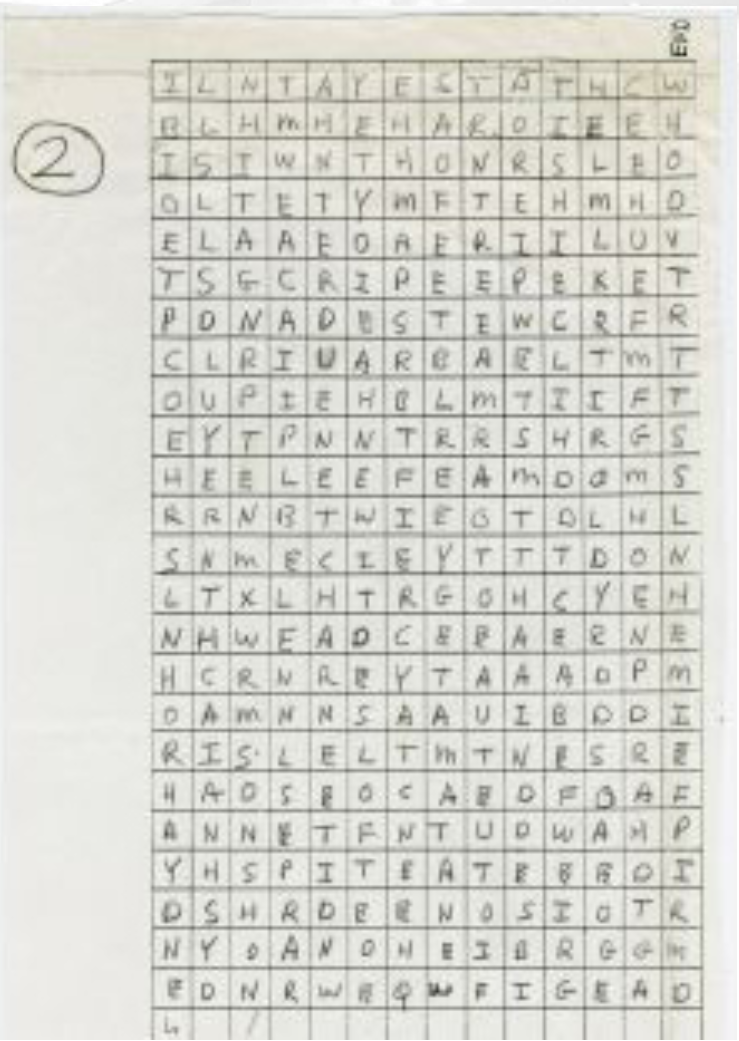 EPD
2
I L N T A Y E S T A T H C W
B L H M H E H A R O I E E H
I S I W N T H O N R S L E O
O L T E T Y M F T E H M H D
E L A A E O A E R I I L U V
T S G C R I P E E P E K E T
P O N A D E S T I W C R F R
C L R I U A R B A E L T M T
O U P I E H B L M T I I F T
E Y T P N N T R R S H R G S
H E E L E E F E A M D O M S
R R N B T W I E O T D L H L
S N M E C I E Y T T T D O N
L T X L H T R G O H C Y E H
N H W E A D C E E A E R N E
H C R N R E Y T A A A D P M
O A M N N S A A U I B D D I
R I S L E L T M T N E S R E
H A O S E O C A E D F O A F
A N N E T F N T U D W A H P
Y H S P I T E A T E B B O I
D S H R D E E N O S I O T R
N Y O A N O H E I B R G G M
E D N R W E Q W F I G E A D
L